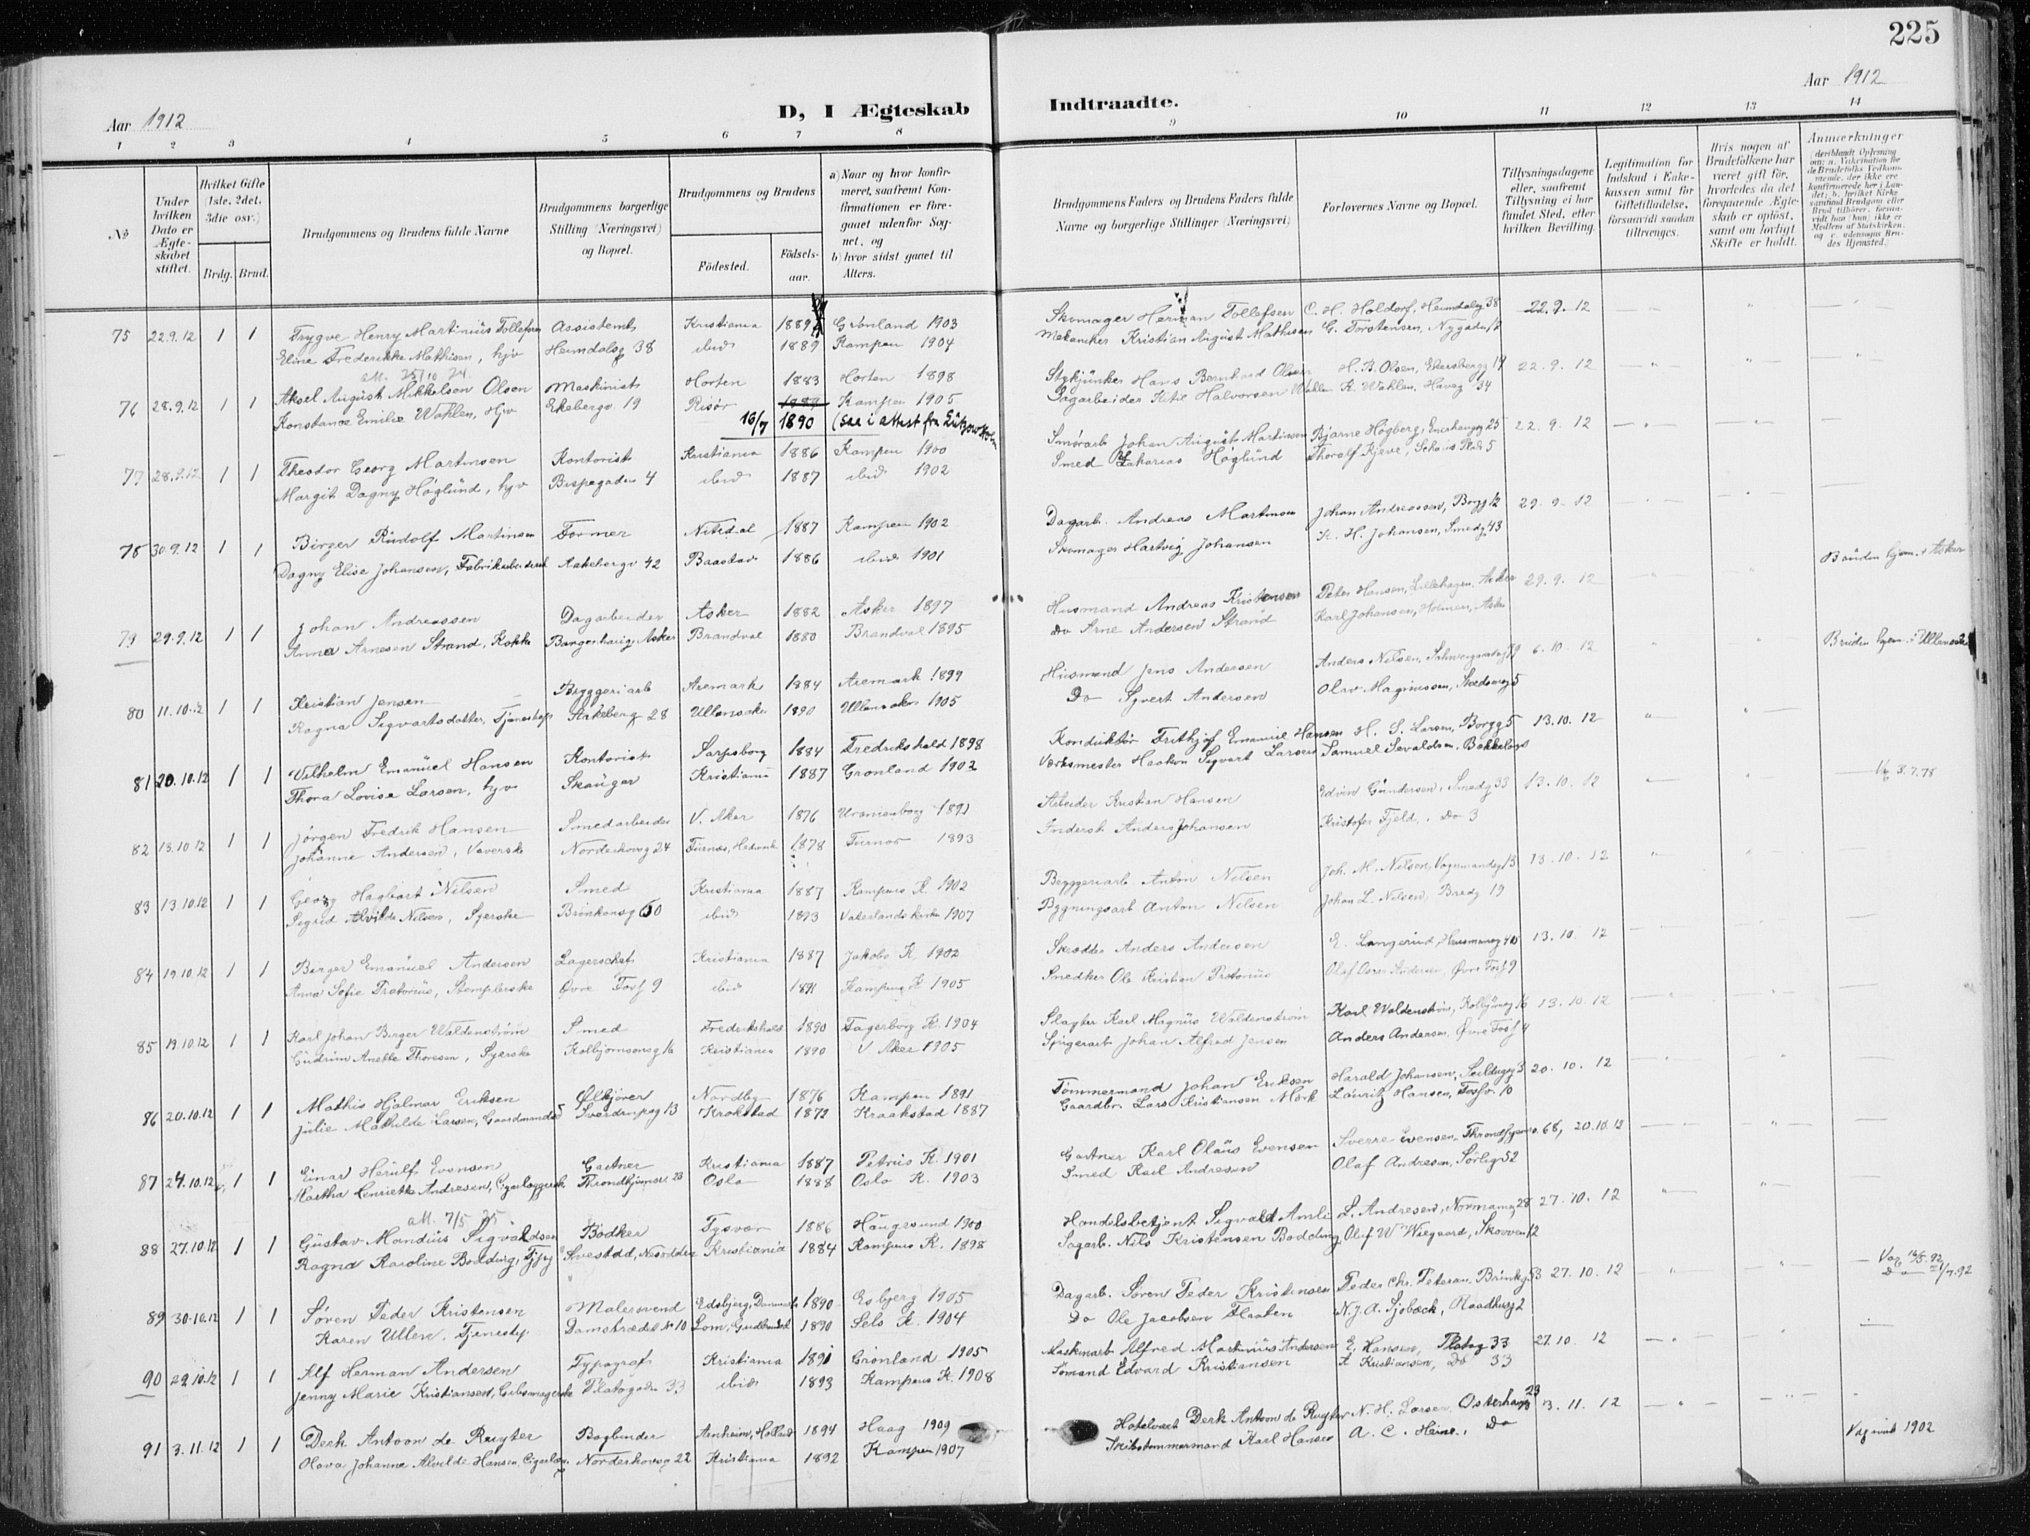 225
Aar 1912
D, I Ægteskab Indtraadte.
Aar 1912
1 2 3 4 5 6 7 8 9 10 11 12 13 14
No
Under hvilken Dato er Ægteskabet stiftet.
Hvilket Gifte (1ste, 2det, 3die osv.)
Brdg. Brud.
Brudgommens og Brudens fulde Navne
Brudgommens borgerlige Stilling (Næringsvei) og Bopæl.
Brudgommens og Brudens
Födested.
Födselsaar.
a) Naar og hvor konfirmeret, saafremt Konfirmationen er foregaaet udenfor Sognet, og
b) hvor sidst gaaet til Alters.
Brudgommens Faders og Brudens Faders fulde Navne og borgerlige Stillinger (Næringsvei)
Forlovernes Navne og Bopæl.
Tillysningsdagene eller, saafremt Tillysning ei har fundet Sted, efter hvilken Bevilling.
Legitimation for Indskud i Enkekassen samt for Giftetilladelse, forsaavidt saadan tiltrænges.
Hvis nogen af Brudefolkene har været gift för, hvorledes da det foregaaende Ægteskab er oplöst, samt om lovligt Skifte er holdt.
Anmærkninger
75 22.9.12 1 1 Trygve Henry Martinius Tollefsen Assistent Kristiania 1889 Grönland 1903 Skomager Herman Tollefsen C. H. Holdorf, Heimdalsg 38 22.9.12
Eline Frederikke Mathisen, hjv Heimdalsg 38 ibid 1889 Kampen 1904 Mekaniker Kristian August Mathisen G. Torstensen, Nygaden
att. 25/10 24.
76 28.9.12 1 1 Aksel August Mikkelsen Olsen Maskinist Horten 1883 Horten 1898 Stykjunker Hans Bernhard Olsen H. B. Olsen, Ekebergg 19 22.9.12
Konstance Emilie Wahlen, hjv Ekebergv. 19 Risör 1889 Kampen 1905 Sagarbeider Ketil Halvorsen Wahlen K. Wahlen, Haveg 34
16/7 1890 (see i attest fra
77 28.9.12 1 1 Theodor Georg Martinsen Kontorist Kristiania 1886 Kampen 1900 Smörarb Johan August Martinsen Bjarne Högberg, 25 22.9.12
Margit Dagny Höglund, hjv Bispegaden 4 ibid 1887 ibid 1902 Smed Zakarias Höglund Thoralf Kjeve, Schous Plads 5
78 30.9.12 1 1 Birger Rudolf Martinsen Former Nitedal 1887 Kampen 1902 Dagarb. Andreas Martinsen Johan Andreassen, Borgg 12 29.9.12
Dagny Elise Johansen, Fabrikarbeiderske Aakebergv 42 Baastad 1886 ibid 1901 Skomager Hartvig Johansen K. H. Johansen, Smedg 43
79 29.9.12 1 1 Johan Andreassen Dagarbeider Asker 1882 Asker 1897 Husmand Andreas Kristensen Peter Hansen, Lillehagen, Asker 29.9.12 Bruden hjem. i Asker
Anna Arnesen Strand, Kokke Asker Brandval 1880 Brandval 1895 Do Arne Andersen Strand Karl Johansen, Holmen, Asker
80 11.10.12 1 1 Kristian Jensen Bryggeriarb Aremark 1884 Aremark 1899 Husmand Jens Andersen Anders Nilsen, 6.10.12 Bruden hjem. i Ullensaker
Ragna Sigvartsdatter, Tjenestepi Aakeberg 28 Ullensaker 1890 Ullensaker 1905 Do Syvert Andersen Olav Magnussen, 5
81 20.10.12 1 1 Vilhelm Emanuel Hansen Kontorist Sarpsborg 1884 Fredrikshald 1898 Konduktör Frithjof Emanuel Hansen H. S. Larsen, Borgg 5 13.10.12
Thora Lovise Larsen, hjv Skauger Kristiania 1887 Grönland 1902 Værksmester Haakon Sigvart Larsen Samuel Sevaldsen,
82 13.10.12 1 1 Jörgen Fredrik Hansen Smedarbeider V. Aker 1876 Uranienborg 1891 Arbeider Kristian Hansen Edvin Gundersen, Smedg 33 13.10.12 3.7.78
Johanne Andersen, Væverske Norderhovsg 24 Furnæs, Hedemk 1878 Furnes 1893 Inderst Anders Johansen Kristofer Fjeld, Do 3
83 13.10.12 1 1 Georg Hagbart Nilsen Smed Kristiania 1887 Kampens K. 1902 Bryggeriarb. Anton Nilsen Joh. M. Nilsen, Vognmandsg 13 13.10.12
Sigrid Alvilde Nilsen, Syerske 60 ibid 1893 Vaterlands kirke 1907 Bygningsarb Anton Nilsen Johan L. Nilsen, Bredg 19
84 19.10.12 1 1 Birger Emanuel Andersen Lagerchef Kristiania 1887 Jakobs K. 1902 Skrædder Anders Andersen E. Langerud, 40 13.10.12
Anna Sofie Pretorius, Stemplerske Övre Fossg 9 ibid 1891 Kampens K. 1905 Snedker Ole Kristian Pretorius Olaf Andersen, Övre Foss 9
85 19.10.12 1 1 Karl Johan Birger Waldenström Smed Fredrikshald 1890 Fagerborg K. 1904 Slagter Karl Magnus Waldenström Karl Waldenström, Kolbjörnsg 16 13.10.12
Gudrun Anette Thoresen, Syerske Kolbjörnsensg 16 Kristiania 1890 V. Aker 1905 Spigerarb Johan Alfred Jensen Anders Andersen, Övre Foss 4
86 20.10.12 1 1 Mathis Hjalmar Eriksen Ölkjörer Nordby 1876 Kampen 1891 Tömmermand Johan Eriksen Harald Johansen, 20.10.12
Julie Mathilde Larsen, Gaardmandsd Sverdrupsg 13 Krokstad 1872 Kraakstad 1887 Gaardbr. Lars Kristiansen Mörk Lauritz Hansen, Fossv. 10
87 24.10.12 1 1 Einar Herulf Evensen Gartner Kristiania 1887 Petrus K. 1901 Gartner Karl Olaus Evensen Sverre Evensen, Throndhjemsv. 68, 20.10.12
Martha Henriette Andresen, Cigarlæggersk Throndhjemsv. 23 Oslo 1888 Oslo K. 1903 Smed Karl Andresen Olaf Andresen, Sörlig 52
att. 7/5 25
88 27.10.12 1 1 Gustav Mandius Sigvaldsen Bödker Tysvær 1886 Haugesund 1900 Handelsbetjent Sigvald Amli L. Andresen, Normannsg 28 27.10.12
Ragna Karoline Bodding, Tjpg Svestad, Nesodden Kristiania 1884 Kampens K. 1898 Sagarb. Nils Kristensen Bodding Olaf W Wiegaard, Skovven 12
89 30.10.12 1 1 Sören Peder Kristensen Malersvend Edsbjerg, Danmark 1890 Esbjerg 1905 Dagarb. Sören Peder Kristensen Peder Chr. Petersen, 53 27.10.12 Vac 13/5.92
Karen Ullen, Tjenestp. Damstrædet No 10 Lom, Gudbrandsd 1890 Sels K. 1904 Do Ole Jacobsen Flaaten N. J. A. Sjöbæck, Raadhusg 2 Do 21/7.92
90 29.10.12 1 1 Alf Herman Andersen Typograf Kristiania 1891 Grönland 1905 Maskinarb Alfred Martinius Andersen E. Hansen, Platog 33 27.10.12
Jenny Marie Kristiansen, Gibsmagerske Platogaden 33 ibid 1893 Kampens K. 1908 Sömand Edvard Kristiansen A Kristiansen, Do 33
91 3.11.12 1 1 Derk Antoon de Ruyter Bogbinder Arnheim, Holland 1894 Haag 1909 Hotelvært Derk Antoon de Ruyter N. H. Larsen, Osterhausg 23 3.11.12
Olava Johanne Alvilde Hansen, Cigarlæg. Norderhovsg 22 Kristiania 1892 Kampen 1907 Skibstömmermand Karl Hansen A. C. Heine, Do 1902